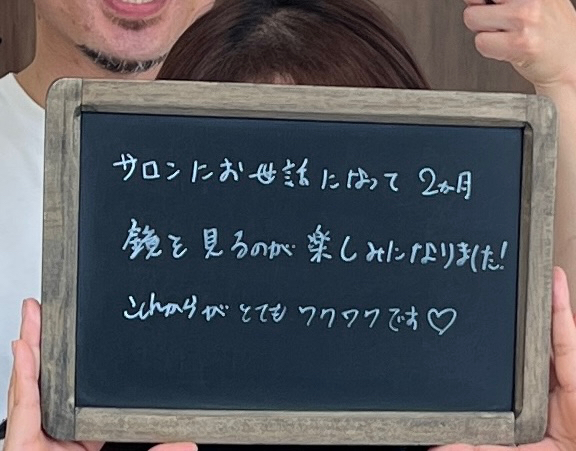 サロンにお世話になって 2か月
鏡を見るのが楽しみになりました!
これからがとてもワクワクです♡